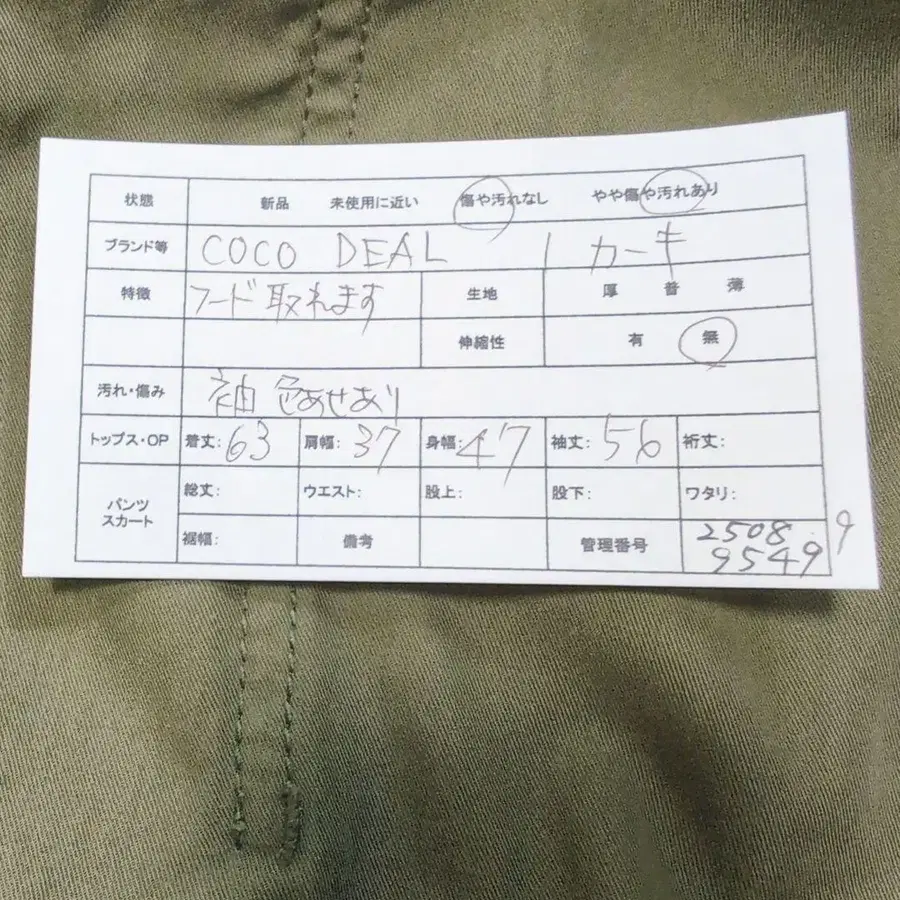 状態 新品 未使用に近い 傷や汚れなし やや傷や汚れあり
ブランド等 COCO DEAL 1 カーキ
特徴 フード取れます 生地 厚 普 薄
伸縮性 有 無
汚れ・傷み 袖 色あせあり
トップス・OP 着丈:63 肩幅:37 身幅:47 袖丈:56 裄丈:
パンツ スカート 総丈: ウエスト: 股上: 股下: ワタリ:
裾幅: 備考 管理番号 2508
9549 9